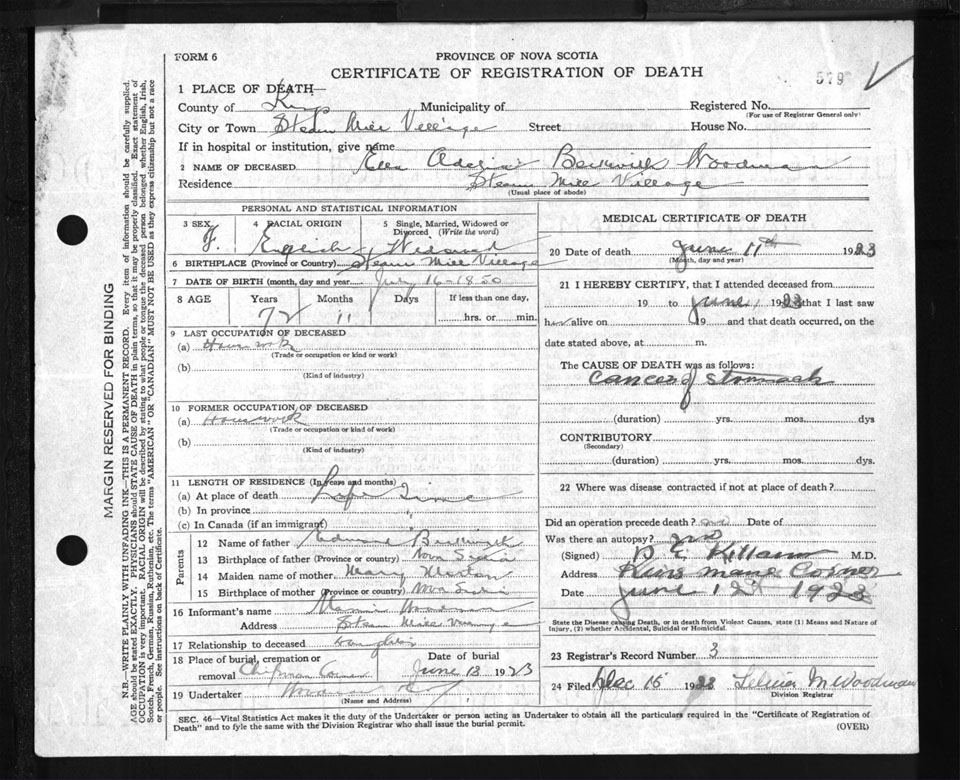 FORM 6
PROVINCE OF NOVA SCOTIA
CERTIFICATE OF REGISTRATION OF DEATH
529
1 PLACE OF DEATH—
County of Kings Municipality of
Registered No.
(For use of Registrar General only)
City or Town Steam Mill Village Street House No.
If in hospital or institution, give name
2 NAME OF DECEASED Ella Beckwith Woodman
Residence Steam Mill Village
(Usual place of abode)
PERSONAL AND STATISTICAL INFORMATION
3 SEX F. 4 RACIAL ORIGIN English 5 Single, Married, Widowed or Divorced (Write the word) Widowed
6 BIRTHPLACE (Province or Country) Steam Mill Village
7 DATE OF BIRTH (month, day and year) July 16-1850
8 AGE Years 72 Months 11 Days If less than one day, hrs. or min.
9 LAST OCCUPATION OF DECEASED
(a) Housework
(Trade or occupation or kind or work)
(b)
(Kind of industry)
10 FORMER OCCUPATION OF DECEASED
(a) Housework
(Trade or occupation or kind of work)
(b)
(Kind of industry)
11 LENGTH OF RESIDENCE (In years and months)
(a) At place of death Life Time
(b) In province "
(c) In Canada (if an immigrant) "
Parents
12 Name of father Edward Beckwith
13 Birthplace of father (Province or country) Nova Scotia
14 Maiden name of mother Mary
15 Birthplace of mother (Province or country) Nova Scotia
16 Informant's name Woodman
Address Steam Mill Village
17 Relationship to deceased daughter
18 Place of burial, cremation or removal Chipman Corner Date of burial June 13 1923
19 Undertaker Woodman
(Name and Address)
MEDICAL CERTIFICATE OF DEATH
20 Date of death June 11th 1923
(Month, day and year)
21 I HEREBY CERTIFY, that I attended deceased from
19 to June 1923 that I last saw
her alive on 19 and that death occurred, on
date stated above, at m.
The CAUSE OF DEATH was as follows:
Cancer of Stomach
(duration) yrs. mos. dys
CONTRIBUTORY
(Secondary)
(duration) yrs. mos. dys.
22 Where was disease contracted if not at place of death?
Did an operation precede death? no Date of
Was there an autopsy? no
(Signed) M.D.
Address Corner
Date June 1923
State the Disease causing Death, or in death from Violent Causes, state (1) Means and Nature of
Injury, (2) whether Accidental, Suicidal or Homicidal.
23 Registrar's Record Number 3
24 Filed Dec 15 1923 M Woodman
Division Registrar
SEC. 46—Vital Statistics Act makes it the duty of the Undertaker or person acting as Undertaker to obtain all the particulars required in the "Certificate of Registration of
Death" and to fyle the same with the Division Registrar who shall issue the burial permit.
(OVER)
MARGIN RESERVED FOR BINDING
N.B.—WRITE PLAINLY WITH UNFADING INK—THIS IS A PERMANENT RECORD. Every item of information should be carefully supplied.
AGE should be stated EXACTLY. PHYSICIANS should STATE CAUSE OF DEATH in plain terms, so that it may be properly classified. Exact statement of
OCCUPATION is very important. RACIAL ORIGIN will be described by stating to what people or tongue the deceased person belonged, whether English, Irish,
Scotch, French, German, Russian, Ruthenian, etc. The terms "AMERICAN" OR "CANADIAN" MUST NOT BE USED as they express citizenship but not a race
or people. See instructions on back of Certificate.